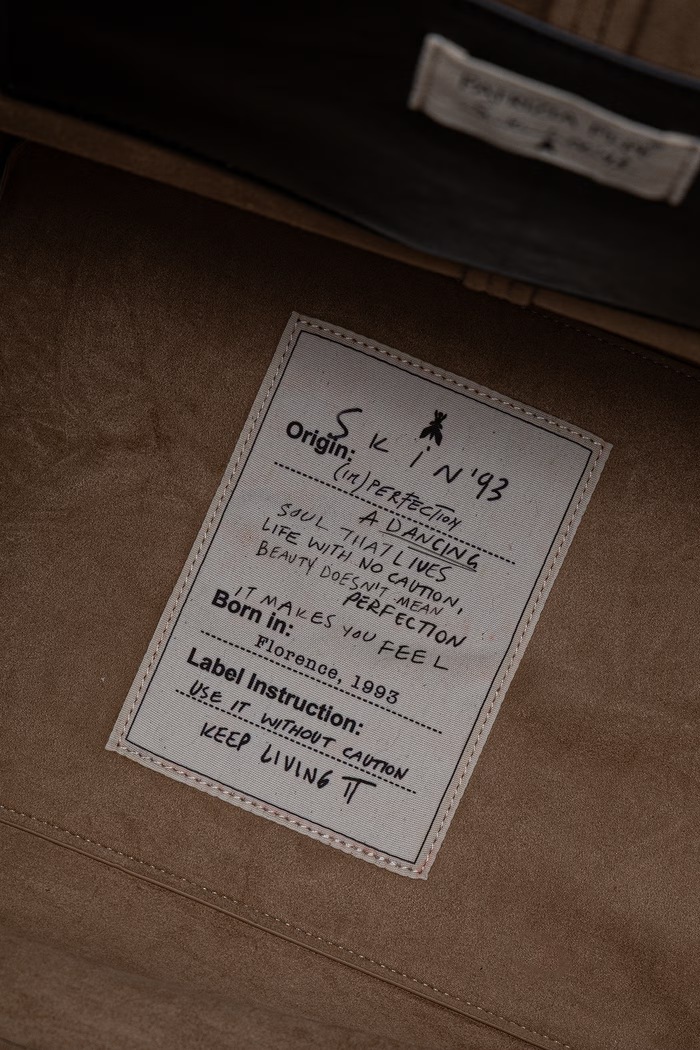 PATRIZIA PEPE
SKiN'93
Origin:
(in)PERFECTION
A DANCING
SOUL THAT LIVES
LIFE WITH NO CAUTION,
BEAUTY DOESN'T MEAN
PERFECTION
IT MAKES YOU FEEL
Born in:
Florence, 1993
Label Instruction:
USE IT WITHOUT CAUTION
KEEP LIVING IT